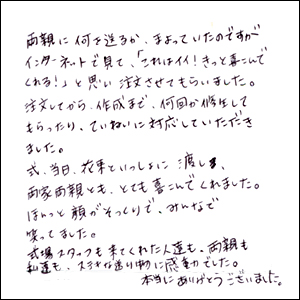 両親に何を送るか、まよっていたのですが
インターネットで見て、「これはイイ!きっと喜こんで
くれる!」と思い注文させてもらいました。
注文してから、作成まで、何回か修正して
もらったり、ていねいに対応していただき
ました。
式、当日、花束といっしょに渡し、
両家両親とも、とても喜こんでくれました。
ほんっと顔がそっくりで、みんなで
笑ってました。
式場スタッフも来てくれた人達も、両親も
私達も、ステキな送り物に感動でした。
本当にありがとうございました。